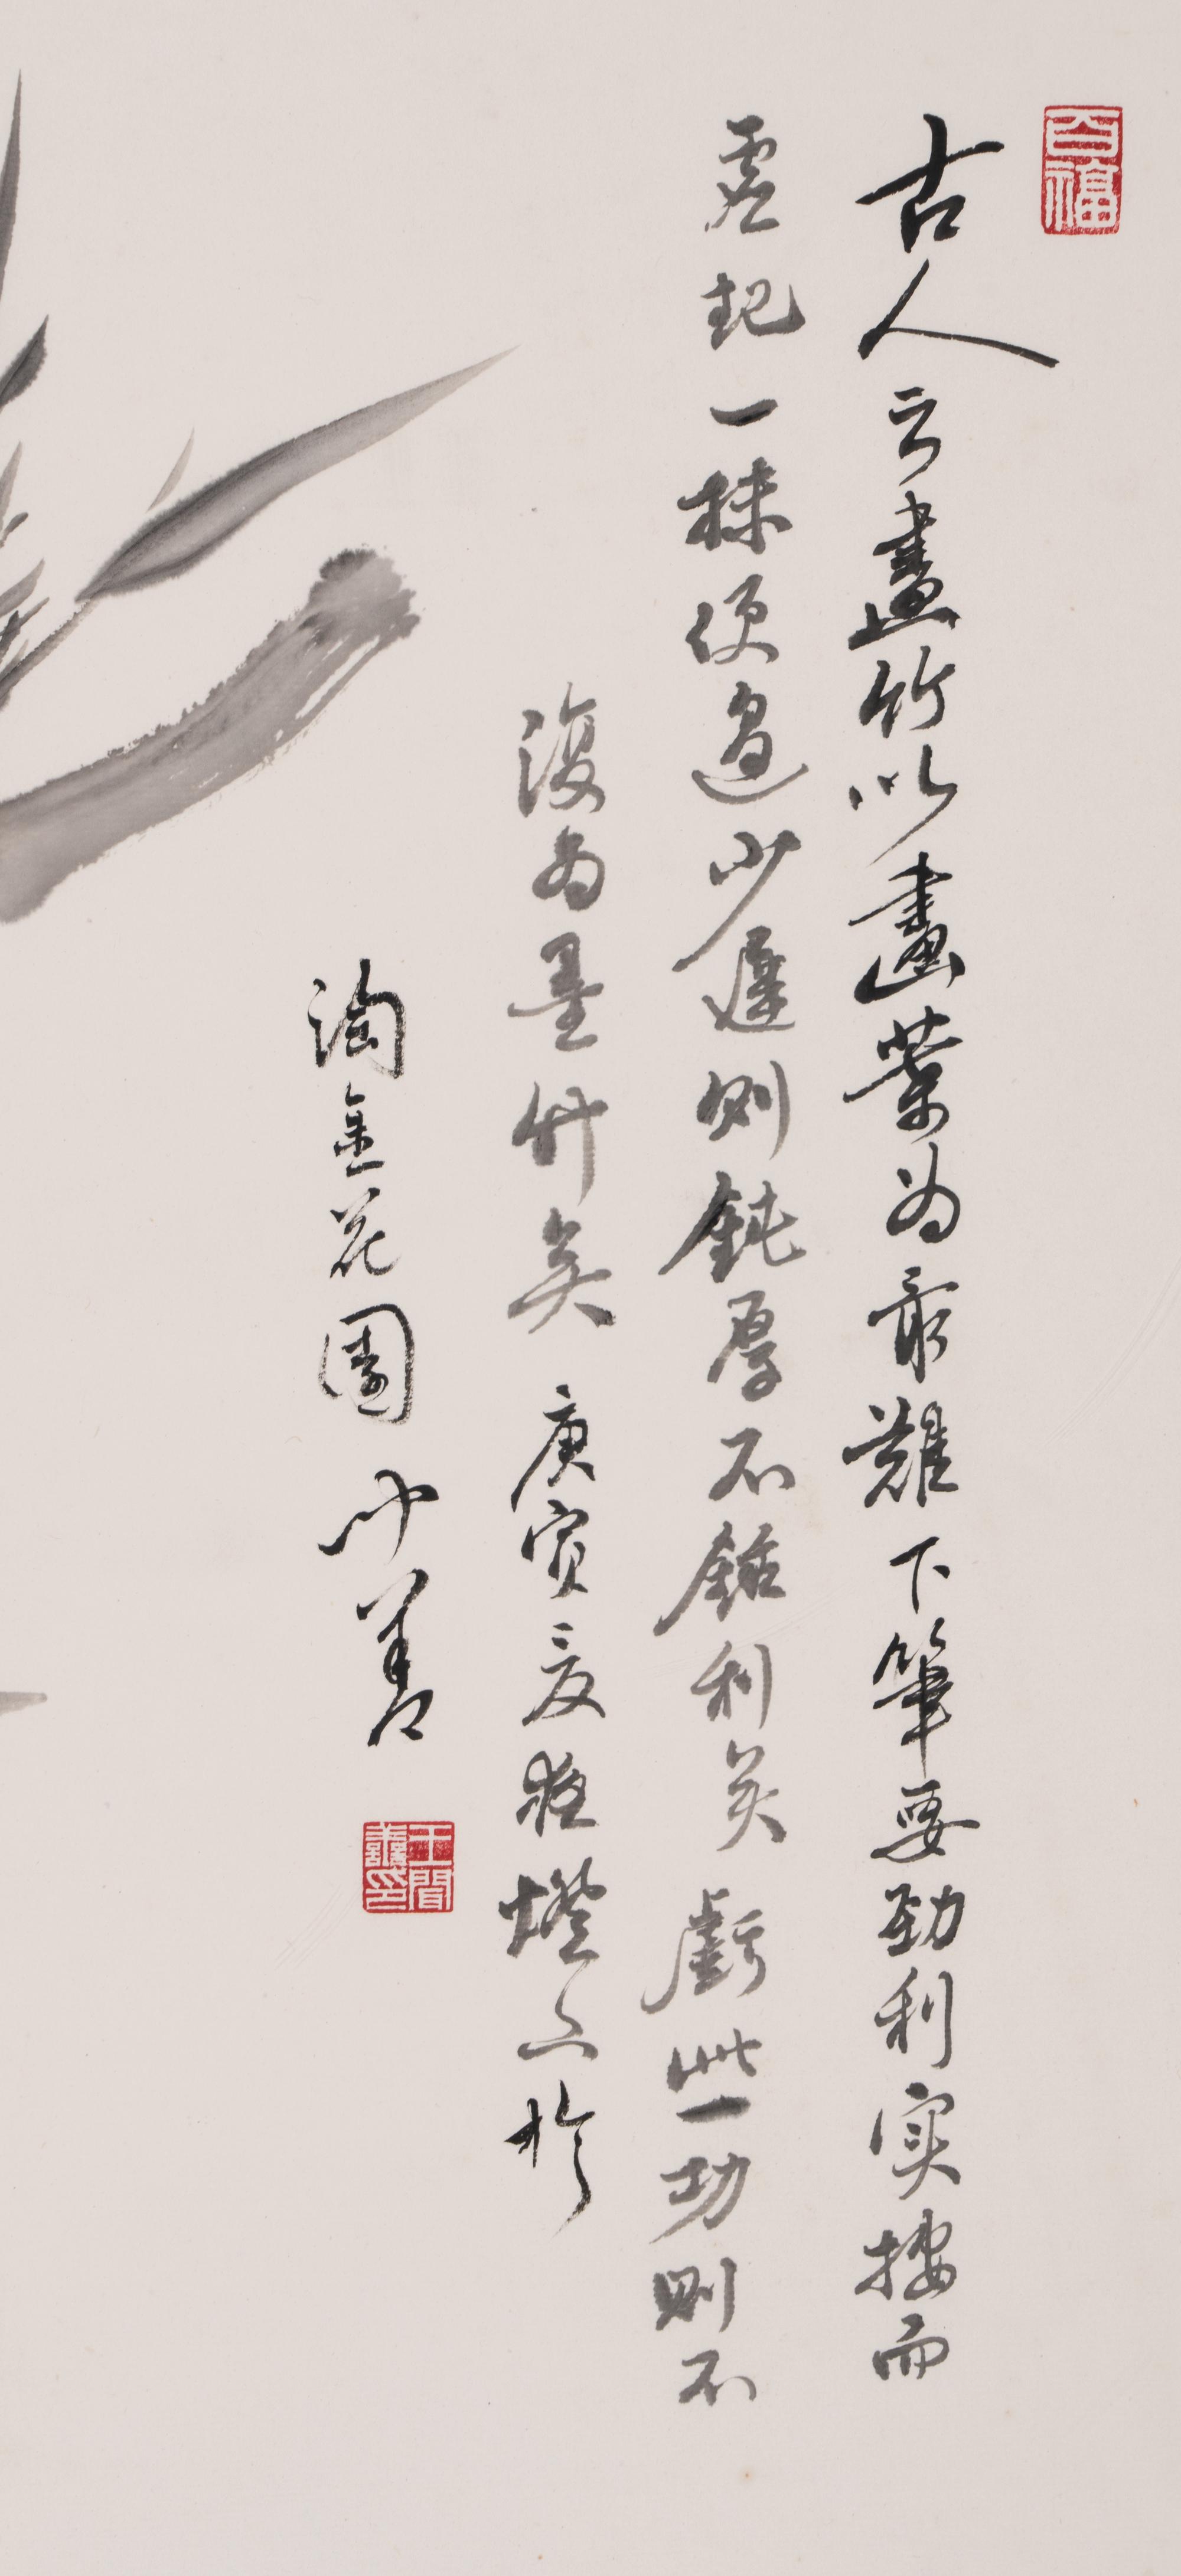 百福
古人云畫竹以畫葉為最難下筆要勁利实按而
虛起一抹便過少遲則鈍厚不銛利矣虧此一功則不
復為墨竹矣 庚寅夏夜燈下於
淘金花園 善
王間善印